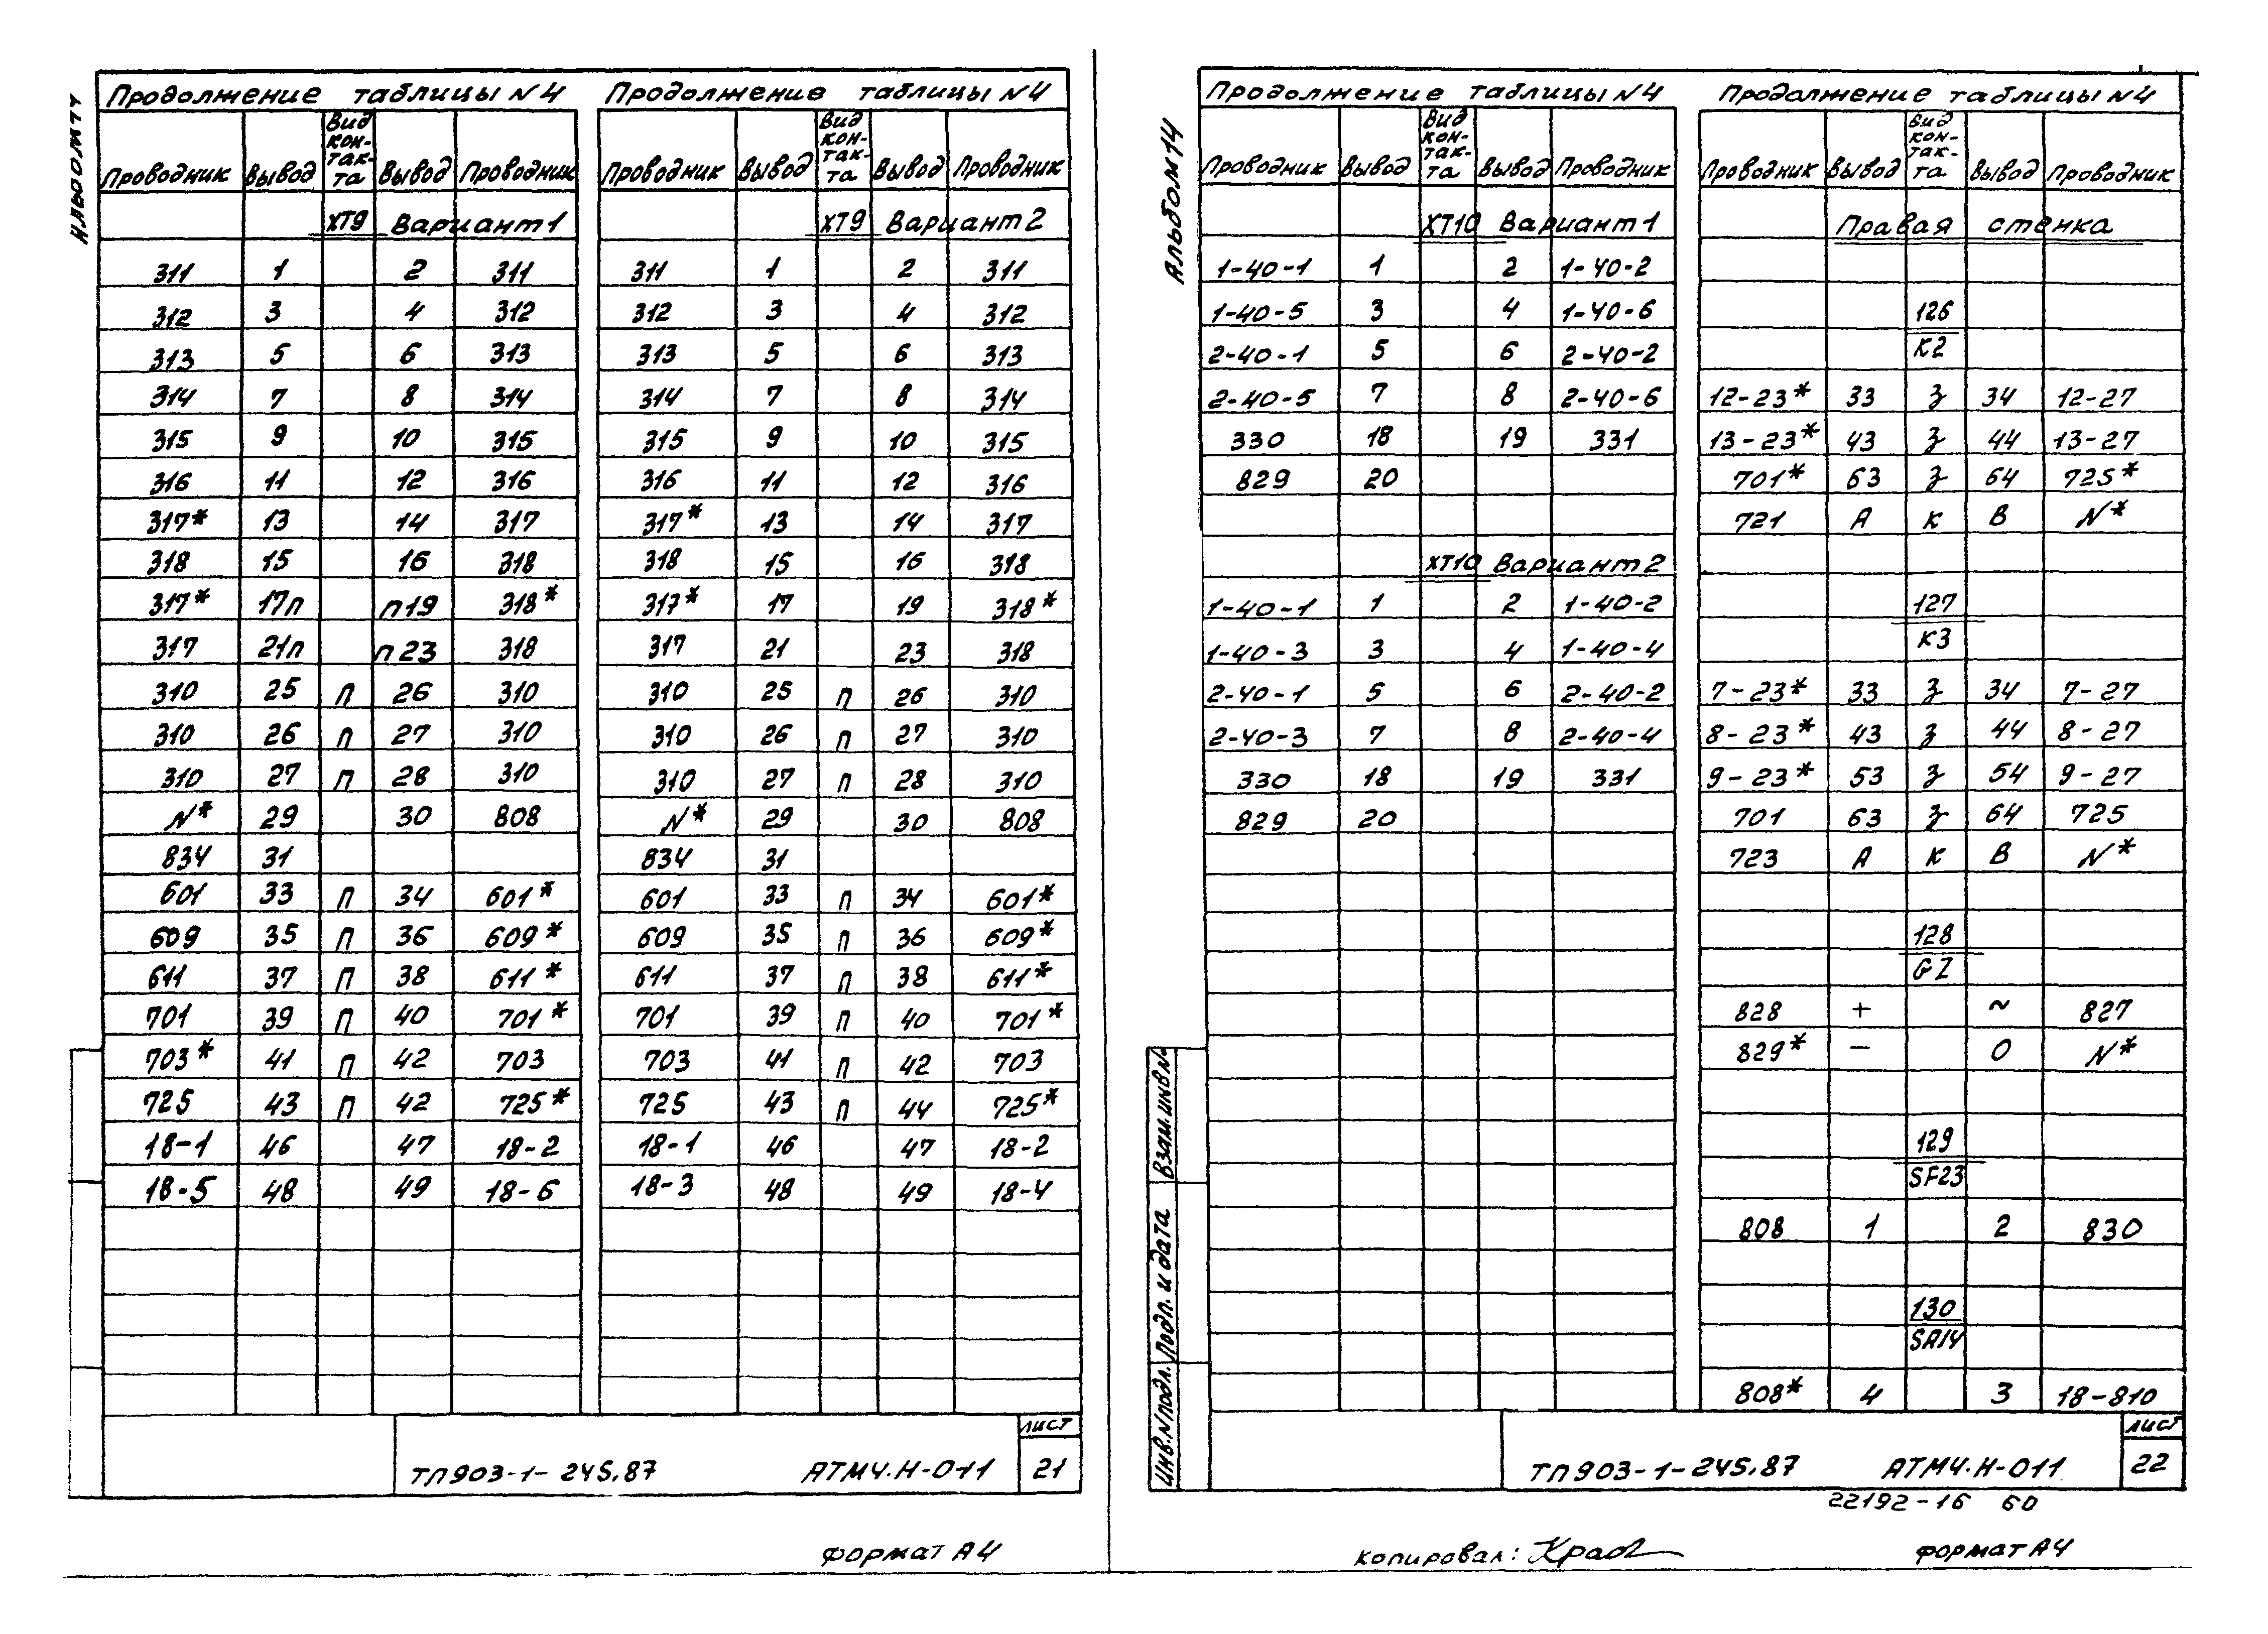 Альбом 14
Продолжение таблицы N4
Проводник Вывод Вид кон-так-та Вывод Проводник
ХТ9 Вариант 1
311 1 2 311
312 3 4 312
313 5 6 313
314 7 8 314
315 9 10 315
316 11 12 316
317* 13 14 317
318 15 16 318
317* 17п п19 318*
317 21п п23 318
310 25 П 26 310
310 26 П 27 310
310 27 П 28 310
N* 29 30 808
834 31
601 33 П 34 601*
609 35 П 36 609*
611 37 П 38 611*
701 39 П 40 701*
703* 41 П 42 703
725 43 П 42 725*
18-1 46 47 18-2
18-5 48 49 18-6
Продолжение таблицы N4
Проводник Вывод Вид кон-так-та Вывод Проводник
ХТ9 Вариант 2
311 1 2 311
312 3 4 312
313 5 6 313
314 7 8 314
315 9 10 315
316 11 12 316
317* 13 14 317
318 15 16 318
317* 17 19 318*
317 21 23 318
310 25 П 26 310
310 26 П 27 310
310 27 П 28 310
N* 29 30 808
834 31
601 33 П 34 601*
609 35 П 36 609*
611 37 П 38 611*
701 39 П 40 701*
703 41 П 42 703
725 43 П 44 725*
18-1 46 47 18-2
18-3 48 49 18-4
ТП903-1-245.87 АТМ4.Н-011
лист
21
Формат А4
Альбом 14
Продолжение таблицы N4
Проводник Вывод Вид кон-так-та Вывод Проводник
ХТ10 Вариант 1
1-40-1 1 2 1-40-2
1-40-5 3 4 1-40-6
2-40-1 5 6 2-40-2
2-40-5 7 8 2-40-6
330 18 19 331
829 20
ХТ10 Вариант 2
1-40-1 1 2 1-40-2
1-40-3 3 4 1-40-4
2-40-1 5 6 2-40-2
2-40-3 7 8 2-40-4
330 18 19 331
829 20
Продолжение таблицы N4
Проводник Вывод Вид кон-так-та Вывод Проводник
Правая стенка
126
К2
12-23* 33 з 34 12-27
13-23* 43 з 44 13-27
701* 63 з 64 725*
721 А К В N*
127
К3
7-23* 33 з 34 7-27
8-23* 43 з 44 8-27
9-23* 53 з 54 9-27
701 63 з 64 725
723 А К В N*
128
GZ
828 + ~ 827
829* − 0 N*
129
SF23
808 1 2 830
130
SA14
808* 4 3 18-810
Инв.N подл. Подп. и дата Взам.инв.N
ТП903-1-245.87 АТМ4.Н-011
лист
22
22192-16 60
Копировал:
Формат А4